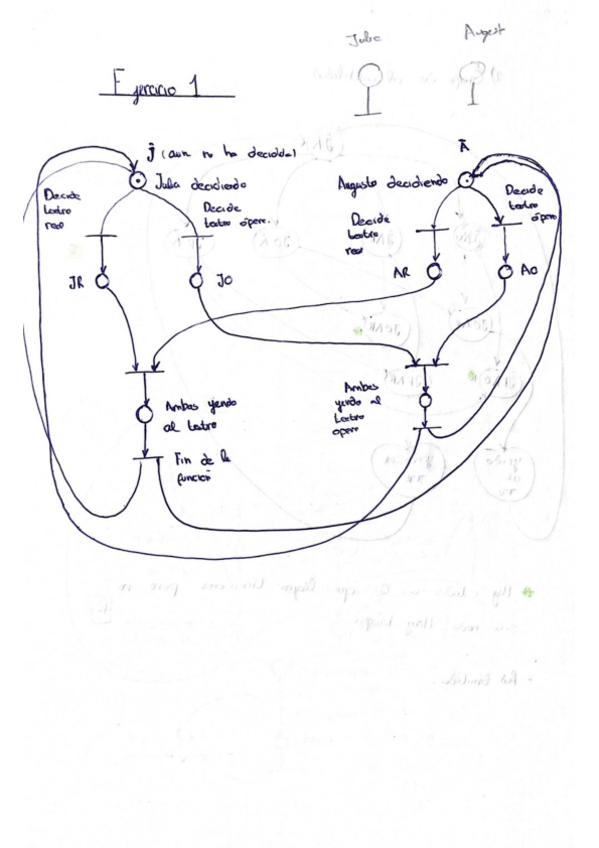 Julia
August
Ejercicio 1
J̄ (aun no ha decidido)
Ā
Julia decidiendo
Augusto decidiendo
Decide
teatro
real
Decide
teatro ópera.
Decide
teatro
real
Decide
teatro
ópera
JR
JO
AR
AO
Ambos yendo
al teatro
Ambos
yendo al
teatro
opera
Fin de la
función